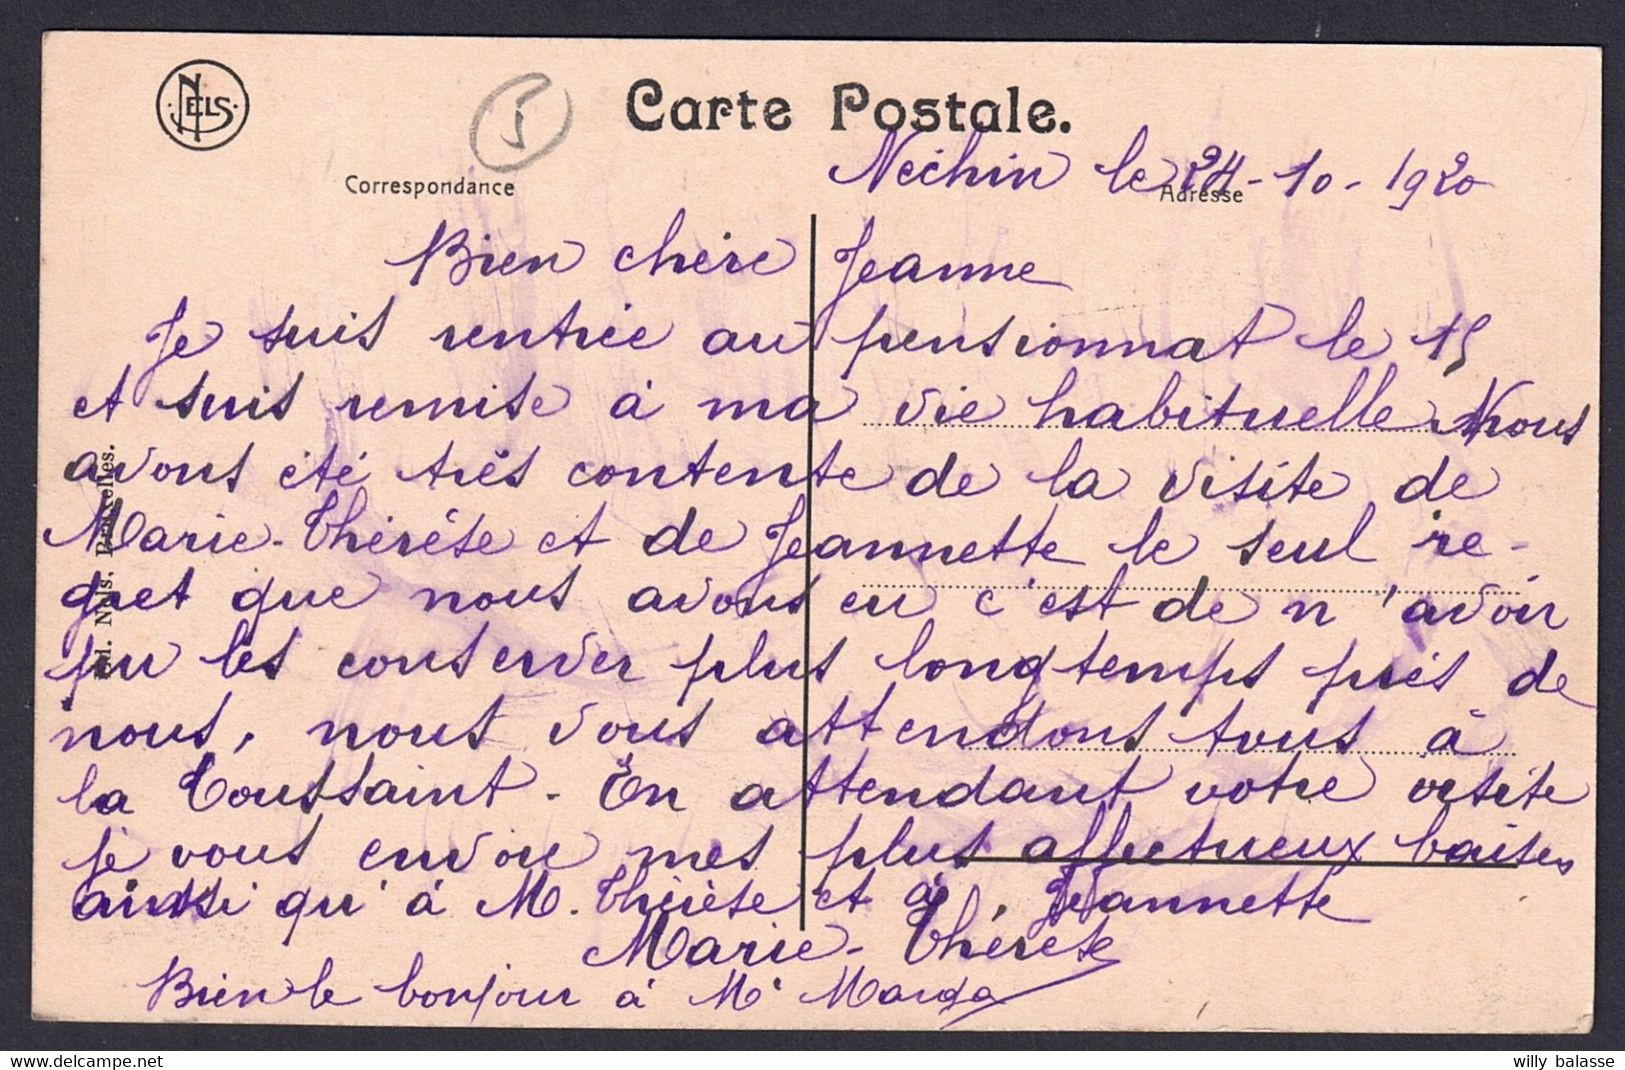 NELS
5
Carte Postale.
Correspondance
Adresse
Néchin le 24-10-1920
Bien chère Jeanne
Je suis rentrée au pensionnat le 15
et suis remise à ma vie habituelle Nous
avons été très contente de la visite de
Marie-Thérèse et de Jeannette le seul re-
gret que nous avons eu c'est de n'avoir
pu les conserver plus longtemps près de
nous, nous vous attendons tous à
la Toussaint. En attendant votre visite
je vous envoie mes plus affectueux baisers
ainsi qu'à M. Thérèse et à Jeannette
Marie-Thérèse
Bien le bonjour à Mr
Ed. Nels. Bruxelles.
willy balasse